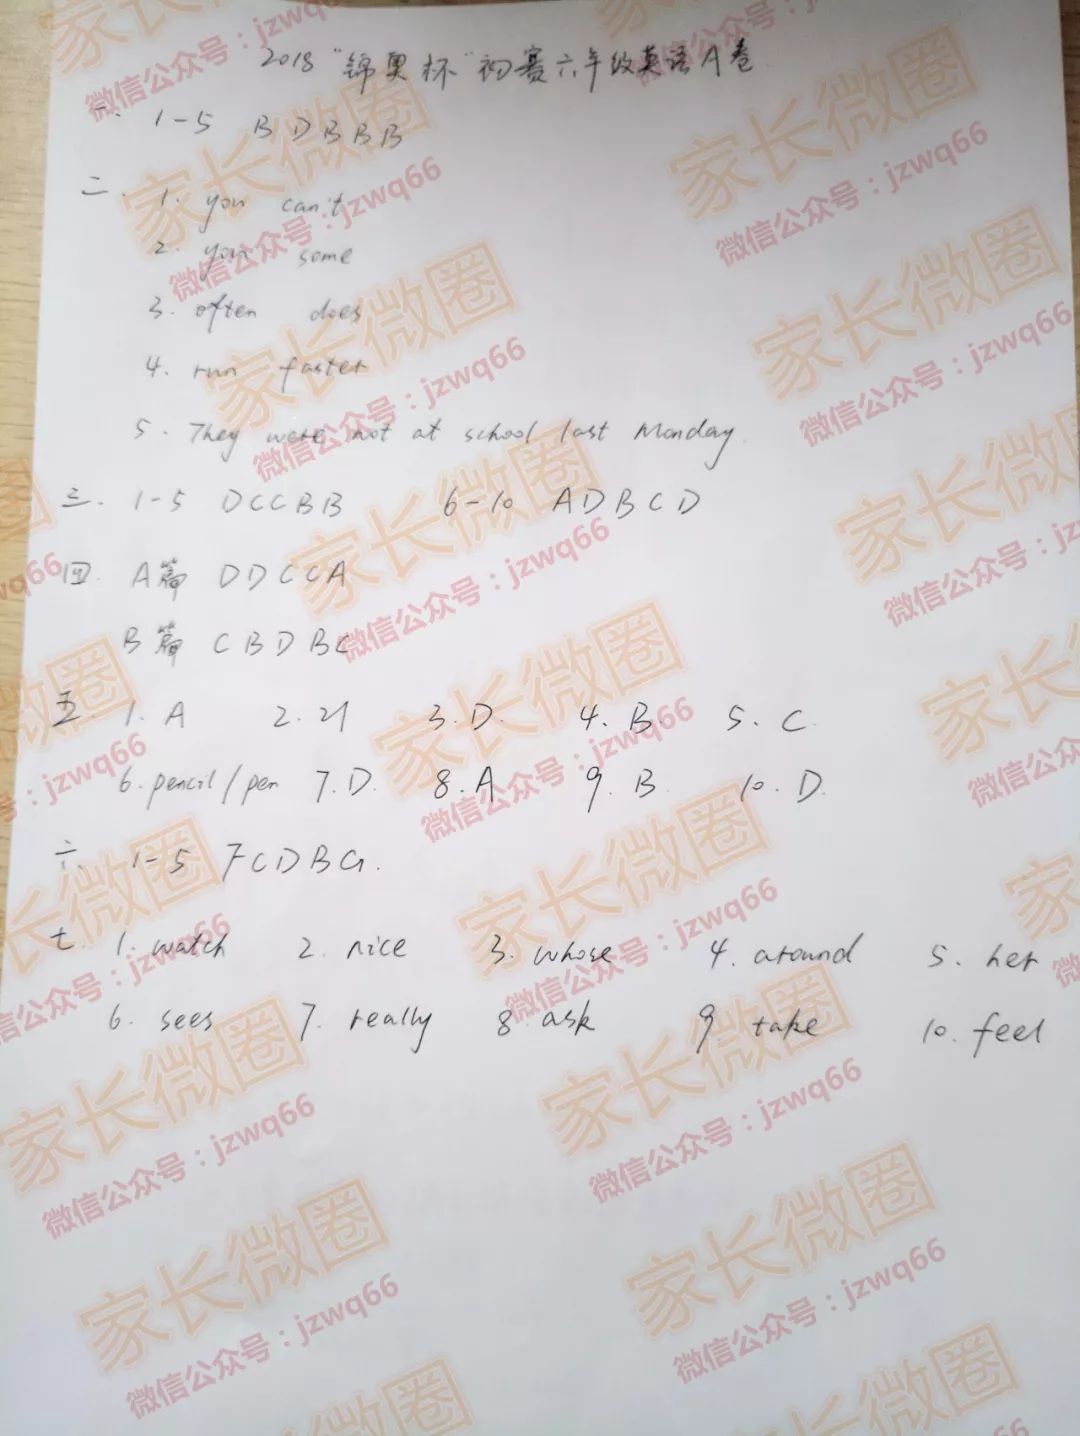 2018“锦奥杯”初赛六年级英语A卷
一. 1-5 BDBBB
二. 1. you can't
2. you some
3. often does
4. run faster
5. They were not at school last Monday.
三. 1-5 DCCBB 6-10 ADBCD
四. A篇 DDCCA
B篇 CBDBC
五. 1. A 2. 21 3. D. 4. B. 5. C.
6. pencil/pen 7. D. 8. A 9. B. 10. D.
六. 1-5 FCDBG.
七. 1. watch 2. nice 3. whose 4. around 5. her
6. sees 7. really 8. ask 9. take 10. feel
家长微圈
微信公众号：jzwq66